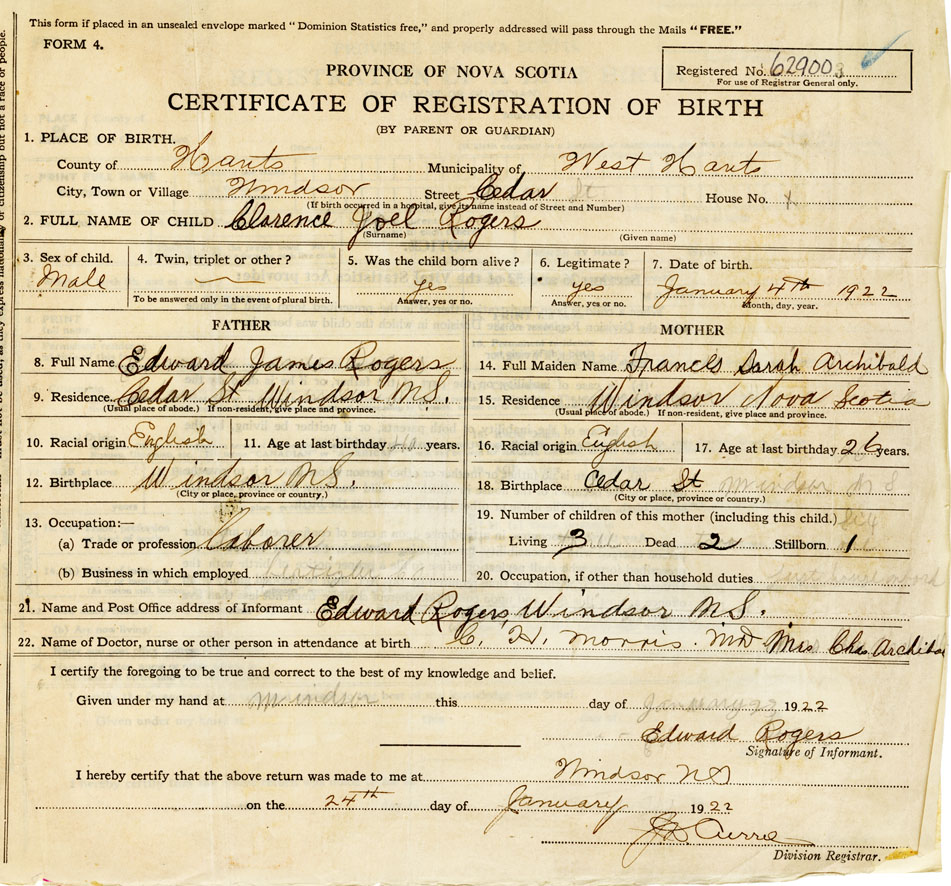 This form if placed in an unsealed envelope marked "Dominion Statistics free," and properly addressed will pass through the Mails "FREE."
FORM 4.
Registered No. 629003
For use of Registrar General only.
PROVINCE OF NOVA SCOTIA
CERTIFICATE OF REGISTRATION OF BIRTH
(BY PARENT OR GUARDIAN)
1. PLACE OF BIRTH.
County of Hants Municipality of West Hants
City, Town or Village Windsor Street Cedar St House No. x
(If birth occurred in a hospital, give its name instead of Street and Number)
2. FULL NAME OF CHILD Clarence Joel Rogers
(Surname) (Given name)
3. Sex of child. 4. Twin, triplet or other? 5. Was the child born alive? 6. Legitimate? 7. Date of birth.
Male — yes yes January 4th 1922
To be answered only in the event of plural birth. Answer, yes or no. Answer, yes or no. Month, day, year.
FATHER
8. Full Name Edward James Rogers
9. Residence. Cedar St Windsor N.S.
(Usual place of abode.) If non-resident, give place and province.
10. Racial origin English 11. Age at last birthday years.
12. Birthplace Windsor N.S.
(City or place, province or country.)
13. Occupation:—
(a) Trade or profession Laborer
(b) Business in which employed
MOTHER
14. Full Maiden Name Frances Sarah Archibald
15. Residence Windsor Nova Scotia
(Usual place of abode.) If non-resident, give place and province.
16. Racial origin English 17. Age at last birthday 26 years.
18. Birthplace Cedar St Windsor N S
(City or place, province or country.)
19. Number of children of this mother (including this child.)
Living 3 Dead 2 Stillborn 1
20. Occupation, if other than household duties
21. Name and Post Office address of Informant Edward Rogers, Windsor N.S.
22. Name of Doctor, nurse or other person in attendance at birth C. H. Morris. MD Mrs Chas Archibal
I certify the foregoing to be true and correct to the best of my knowledge and belief.
Given under my hand at Windsor this day of January 1922
Edward Rogers
Signature of Informant.
I hereby certify that the above return was made to me at Windsor NS
on the 24th day of January 1922
Division Registrar.